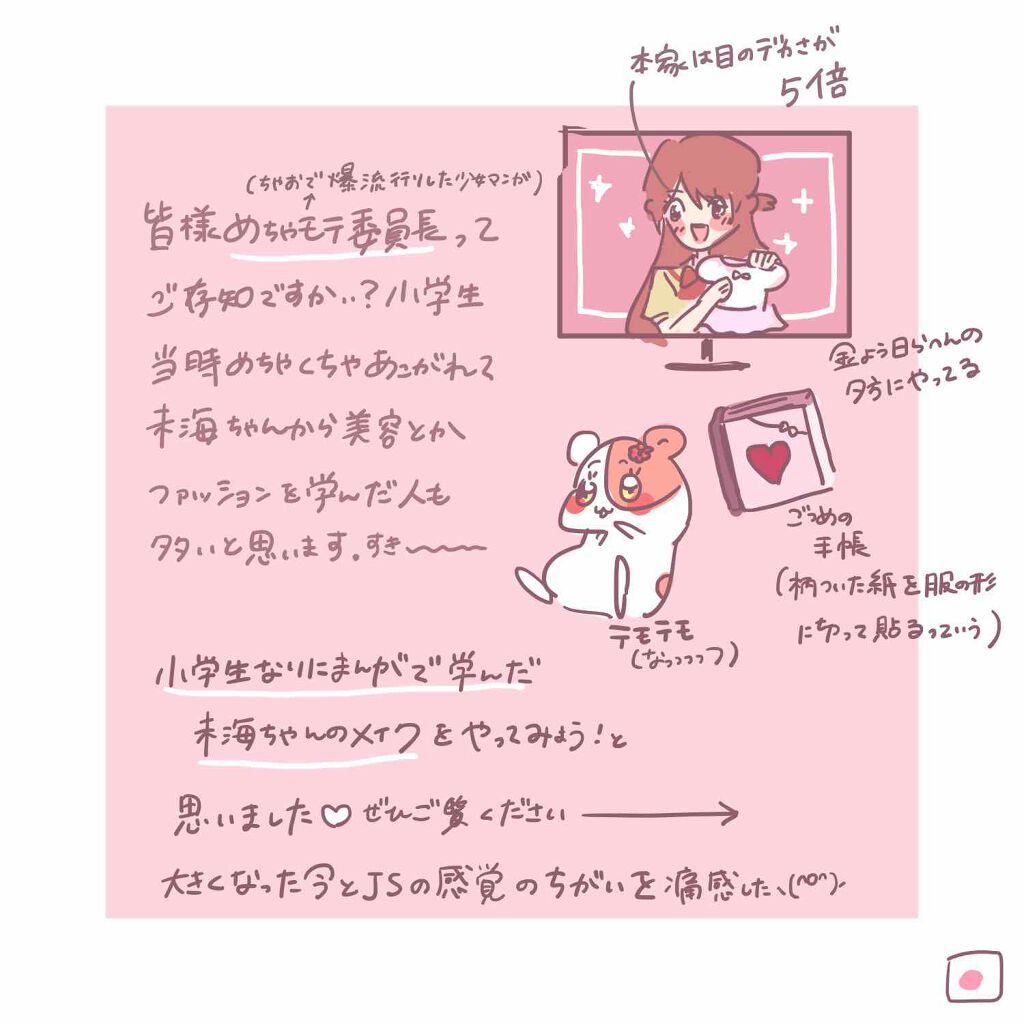 本家は目のデカさが
5倍
(ちゃおで爆流行りした少女マンガ)
皆様めちゃモテ委員長って
ご存知ですか..?小学生
当時めちゃくちゃあこがれて
未海ちゃんから美容とか
ファッションを学んだ人も
多いと思います。すき〜〜〜
金よう日らへんの
夕方にやってる
ごつめの
手帳
(柄ついた紙を服の形
に切って貼るっていう)
テモテモ
(なっっっっつ)
小学生なりにまんがで学んだ
未海ちゃんのメイクをやってみよう!と
思いました♡ぜひご覧ください→
大きくなった今とJSの感覚のちがいを痛感した、(^o^)